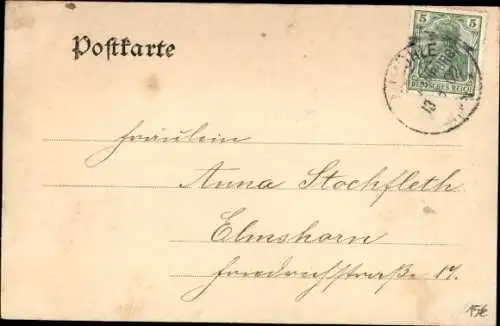 Postkarte
5 5
DEUTSCHES REICH
Fräulein
Anna Stockfleth
Elmshorn
Friedrichstraße 14.